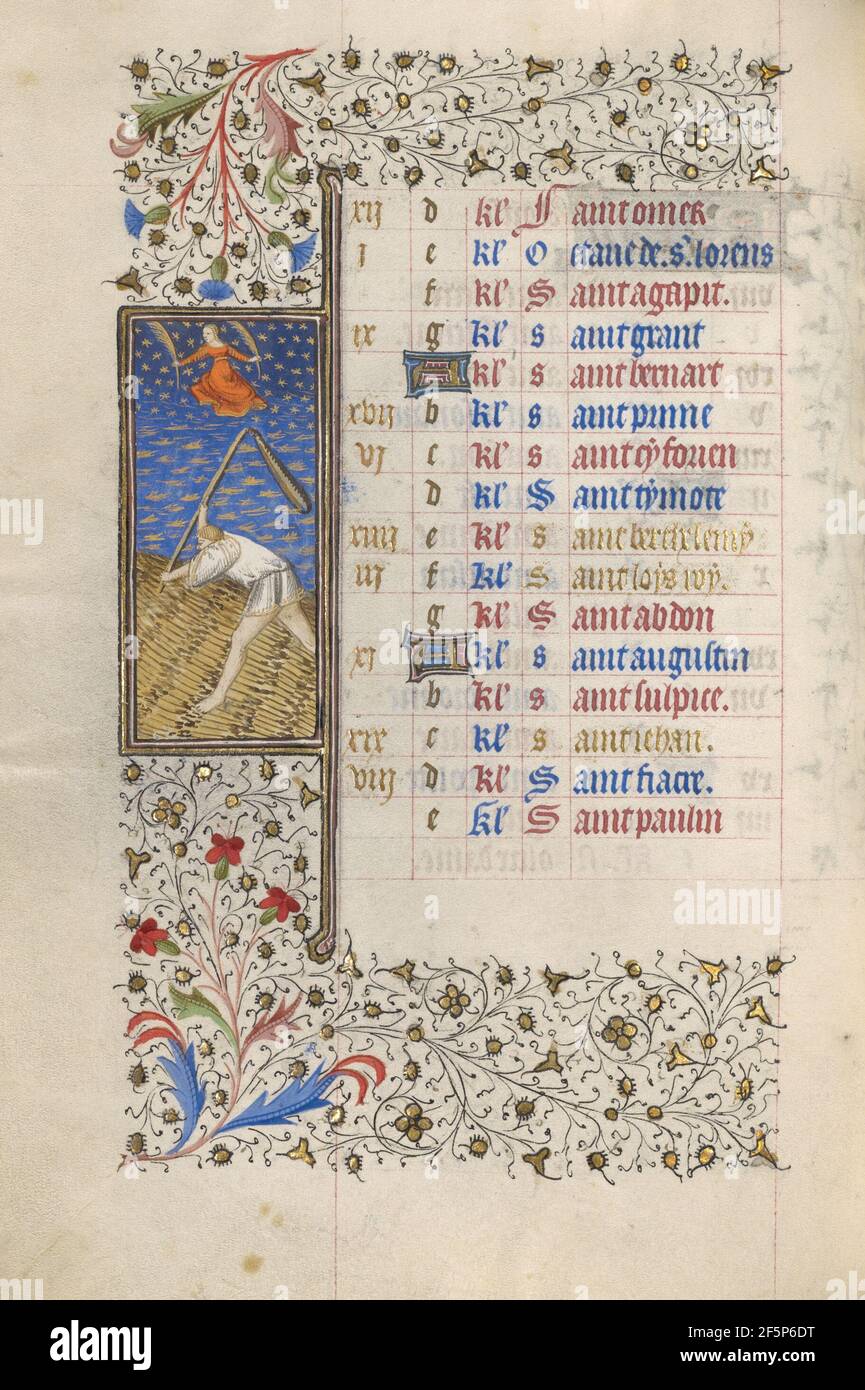 xij d kl' Saint omer
j e kl' Octave de .s. lorens
f kl' Saint agapit.
ix g kl' saint grant
A kl' saint bernart
xvij b kl' saint prinne
vj c kl' saint cyforien
d kl' Saint tymote
xiiij e kl' saint berthelemy
iij f kl' Saint loys roy.
g kl' Saint abdon
xj A kl' saint augustin
b kl' saint sulpice.
xix c kl' saint iehan.
viij d kl' Saint fiacre.
e kl' Saint paulin
alamy
Image ID: 2F5P6DT
www.alamy.com